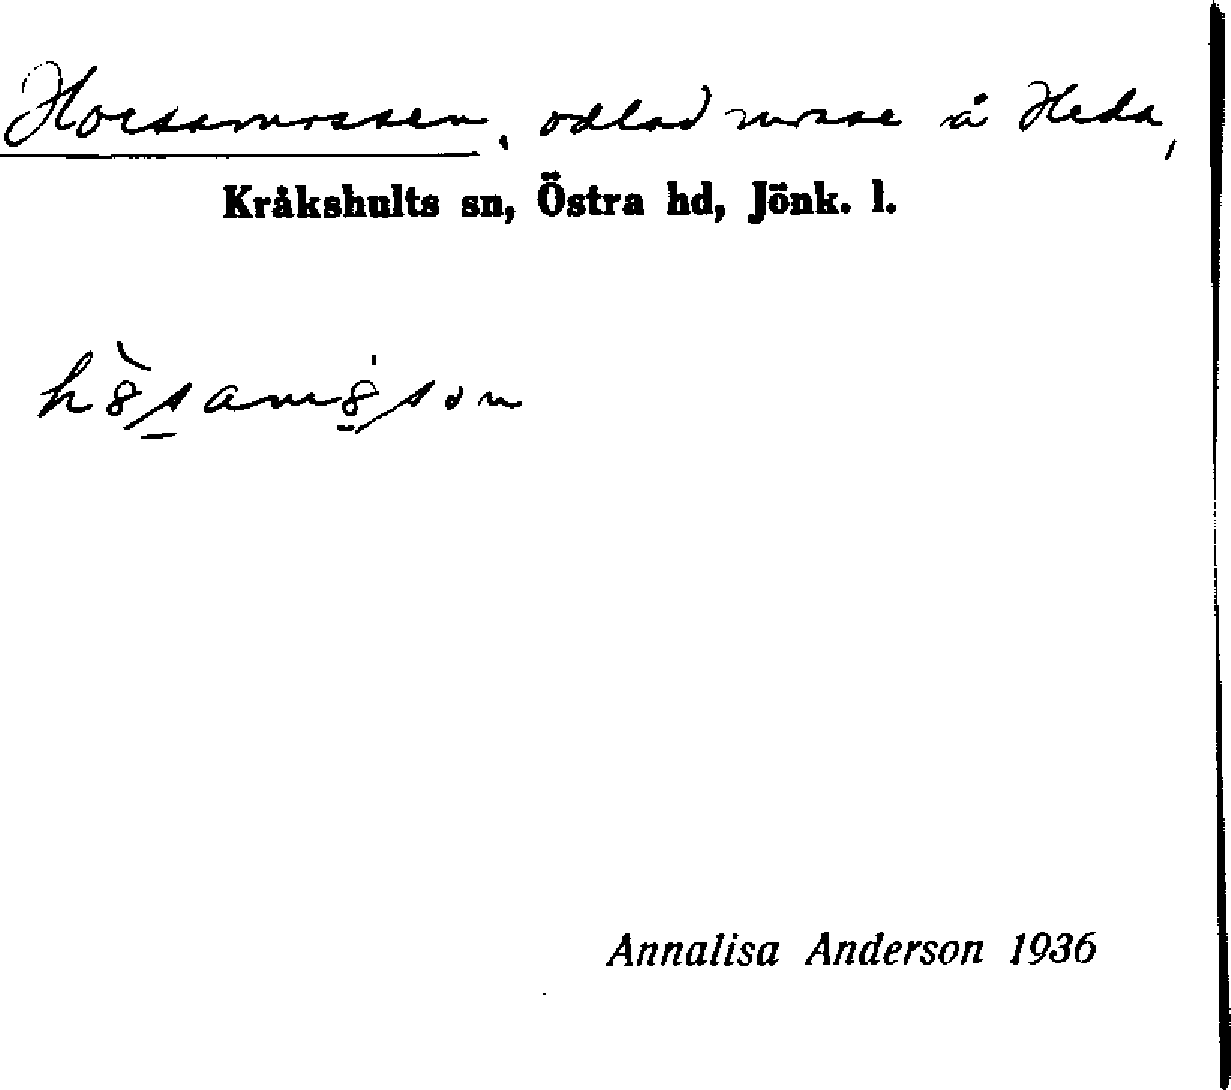 Horssamossen, odlad mosse å Heda,
Kråkshults sn, Östra hd, Jönk. l.
Annalisa Anderson 1936